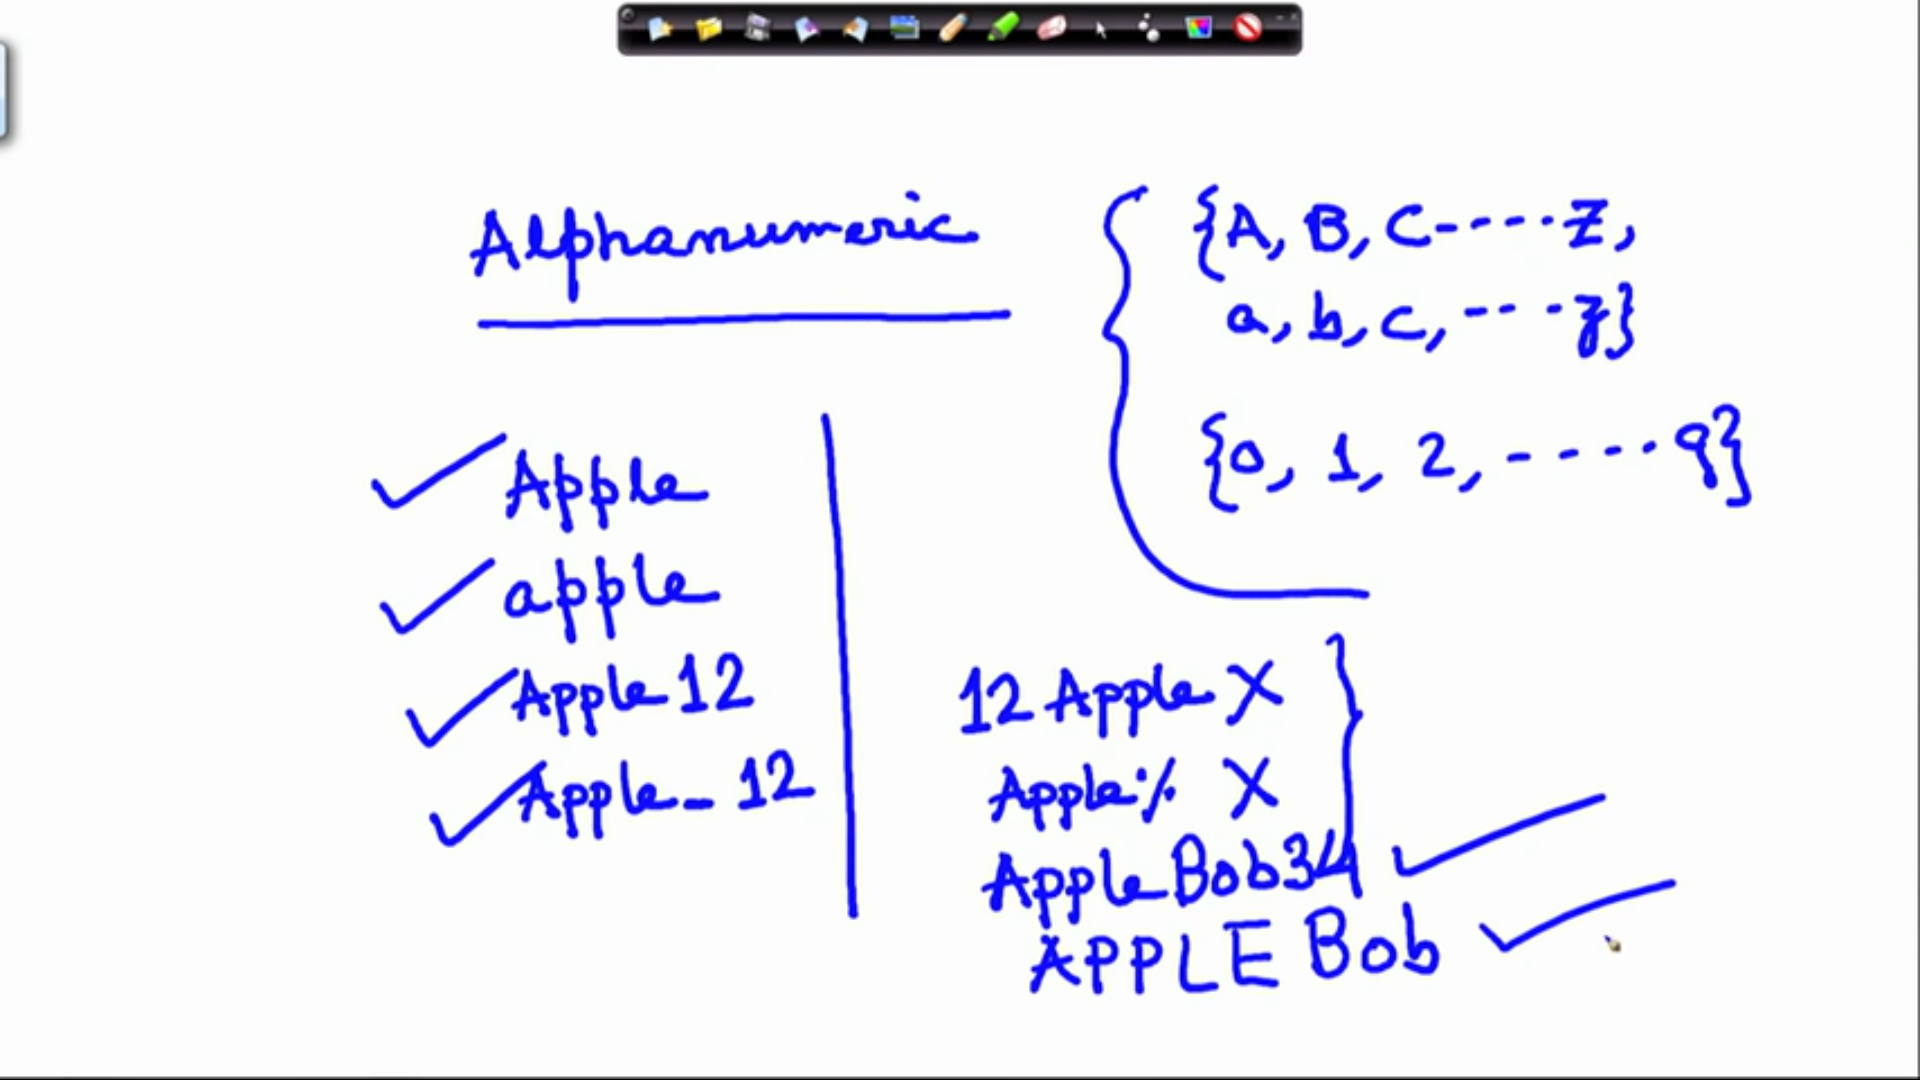 Alphanumeric
{A, B, C-----Z,
a, b, c, ----z}
{0, 1, 2, -----9}
Apple
apple
Apple12
Apple_12
12Apple X
Apple% X
AppleBob34
APPLEBob